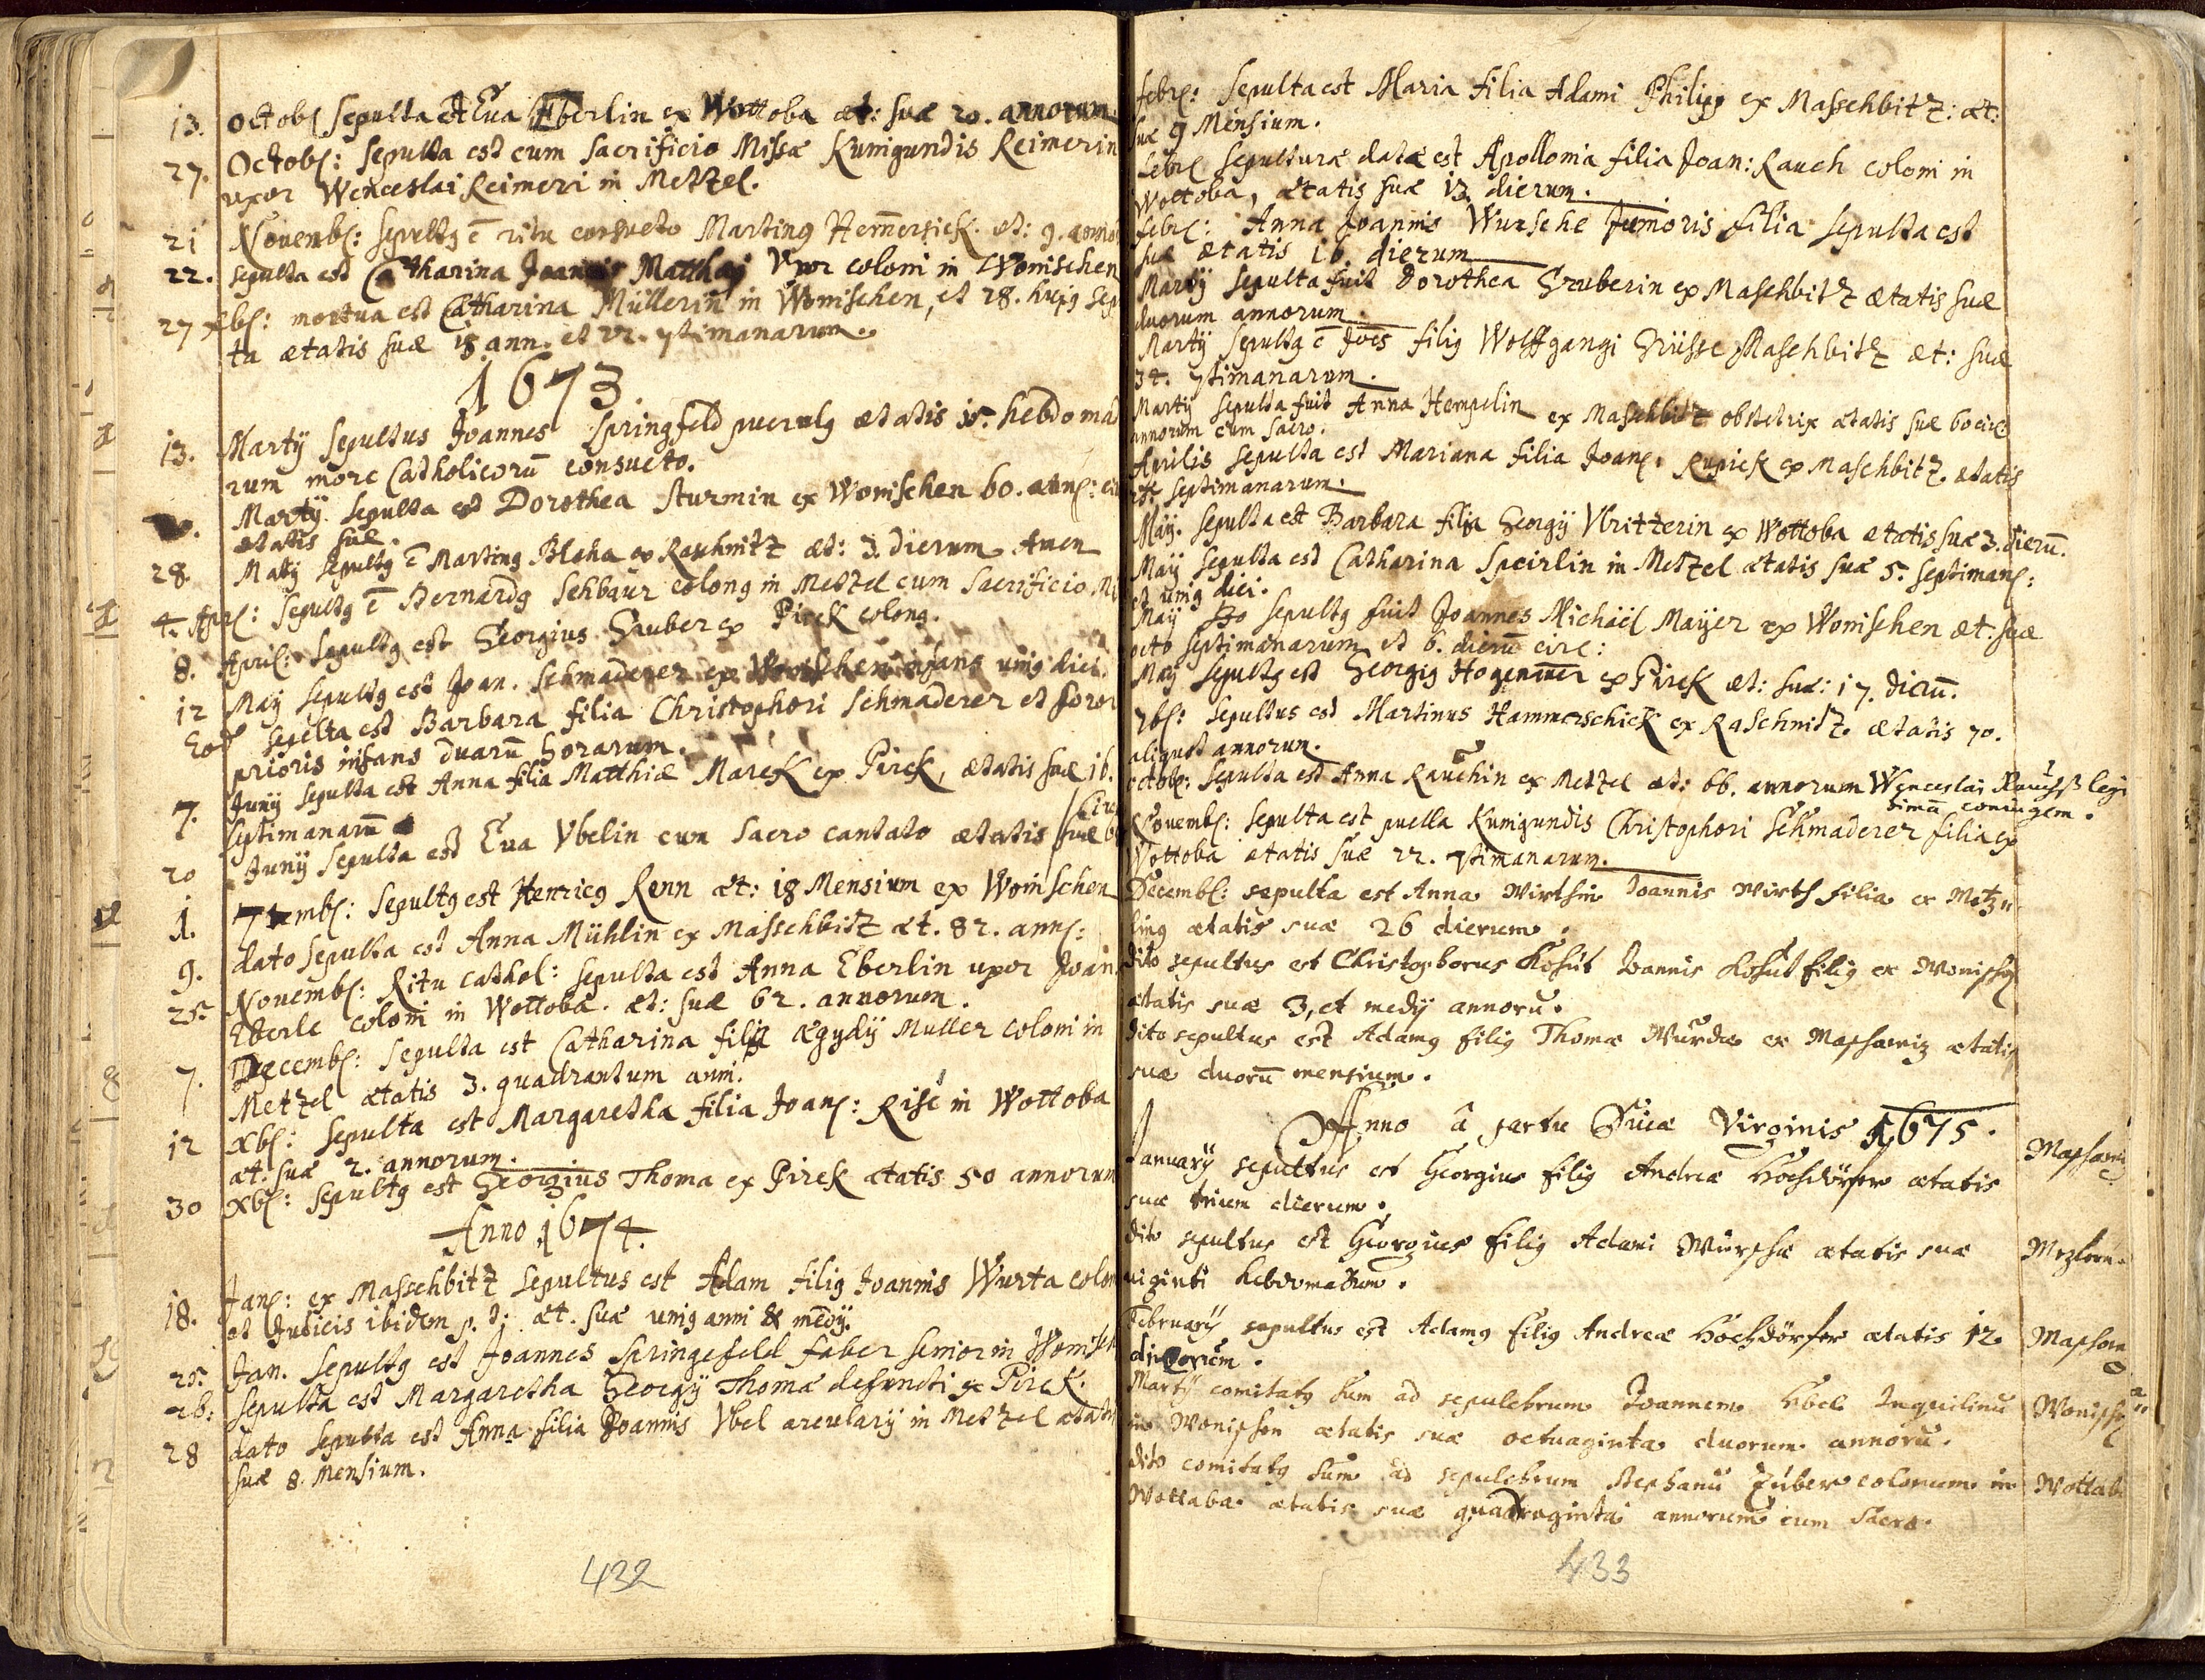 13. Octob: sepulta est Eua Eberlin ex Wottoba æt: suæ 20. annorum
27. Octob: sepulta est cum sacrificio Missæ Kunigundis Reimerin
uxor Wenceslai Reimeri in Metzel.
21 Novemb: sepultg ē ritu consueto Marting Hem̄ersick. æt: 9. anno
22. sepulta est Catharina Joannis Matthæi Uxor coloni in Wonischen
27 xb: mortua est Catharina Müllerin in Wonischen, et 28. hujg sep
ta ætatis suæ 18 ann. et 22. 7timanarum.
1673
13. Martÿ sepultus Joannes Springfeld puerulg ætatis 15. hebdoma
rum more Catholicorū consueto.
Martÿ sepulta est Dorothea Sturmin ex Wonischen 60. ann:
ætatis suæ.
28. Martÿ sepultg ē Marting Blaha ex Raschnitz æt: 3. dierum Amen
4. Apr: sepultg ē Bernardg Sehbaur colong in Metzel cum sacrificio Mi
8. April: sepultg est Georgius Gruber ex Pirek colong.
12 Maÿ sepultg est Joan. Schmaderer ex Wonischen infans unig diei.
Eod sepulta est Barbara filia Christophori Schmaderer et soror
prioris infans duarū horarum.
7. Junÿ sepulta est Anna filia Matthiæ Marek ex Pirek, ætatis suæ 16.
septimanarū
20 Junÿ sepulta est Eua Vbelin cum sacro cantato ætatis suæ
1. 7temb: sepultg est Henricg Renn æt: 18 Mensium ex Wonischen
9. dato sepulta est Anna Mühlin ex Masschbitz æt. 82. ann:
25. Novemb: Ritu cathol: sepulta est Anna Eberlin uxor Joan
Eberle coloni in Wottoba. æt: suæ 62. annorum.
7. Decemb: sepulta est Catharina filia Ægydÿ Muller coloni in
Metzel ætatis 3. quadrantum anni.
12 xb: sepulta est Margaretha filia Joan: Rise in Wottoba
æt: suæ 2. annorum.
30 xb: sepultg est Georgius Thoma ex Pirek ætatis 50 annorum
Anno 1674.
18. Jan: ex Masschbitz sepultus est Adam filig Joannis Wurta colon
et Judicis ibidem p. t: æt. suæ unig anni & medÿ.
25. Jan. sepultg est Joannes Springefeld faber senior in Wonisch
26: sepulta est Margaretha Georgÿ Thomæ defuncti ex Pirek.
28 dato sepulta est Anna filia Joannis Vbel arcularÿ in Metzel ætatis
suæ 8. Mensium.
432
febr: sepulta est Maria filia Adami Philipp ex Masschbitz: æt:
suæ 9 Mensium.
febr sepulturæ data est Apollonia filia Joan: Rauch coloni in
Wottoba, ætatis suæ 13 dierum.
febr: Anna Joannis Wursche Junioris filia sepulta est
suæ ætatis 16. dierum
Martÿ sepulta fuit Dorothea Gruberin ex Maschbitz ætatis suæ
duorum annorum.
Martÿ sepultg ē Joēs filig Wolffgangi Grüsse Maschbitz æt: suæ
34. 7timanarum.
Martÿ sepulta fuit Anna Hempelin ex Maschbitz obstetrix ætatis suæ 60 circ
annorum cum sacro.
Aprilis sepulta est Mariana filia Joan: Rupick ex Maschbitz. ætatis
septimanarum.
Maÿ. sepulta est Barbara filia Georgÿ Vlritzerin ex Wottoba ætatis suæ 3. dierū.
Maÿ sepulta est Catharina Speirlin in Metzel ætatis suæ 5. septiman:
et unig diei.
Maÿ sepultg fuit Joannes Michäel Maÿer ex Wonischen æt. suæ
octo septimanarum et 6. dierū circ:
Maÿ sepultg est Georgig Hogenauer ex Pirek æt: suæ: 17. dierū.
7b: sepultus est Martinus Hammerschick ex Raschnitz. ætatis 70.
aliquot annorum.
octob: sepulta est Anna Rauchin ex Metzel æt: 66. annorum Wenceslai Rauchß legi
timā coniugem.
Novemb: sepulta est puella Kunigundis Christophori Schmaderer filia ex
Wottoba ætatis suæ 22. 7timanarum.
Decemb: sepulta est Anna Wirthin Joannis Wirth filia ex Metz„
ling ætatis suæ 26 dierum.
dito sepultus est Christophorus Kosut Joannis Kosut filig ex Wonischen
ætatis suæ 3, et medÿ annorū.
dito sepultus est Adamg filig Thomæ Wurda ex Maschawiz ætatis
suæ duorū mensium.
Anno â partu Diuæ Virginis 1675.
Januarÿ sepultus est Georgius filig Andreæ Hochdörfer ætatis Maschawi
suæ trium dierum.
dito sepultus est Georgius filig Adami Wursche ætatis suæ
viginti hebdomadum.
Februarÿ sepultus est Adamg filig Andreæ Hochdörfer ætatis 12.
dierum.
Martÿ comitatg sum ad sepulchrum Joannem Hbel Inquilinū Wonische
in Wonischen ætatis suæ octuaginta duorum annorū.
dito comitatg sum ad sepulchrum Stephanū Zuber colonum in Wottab
Wottaba ætatis suæ quadraginta annorum cum sacro.
433